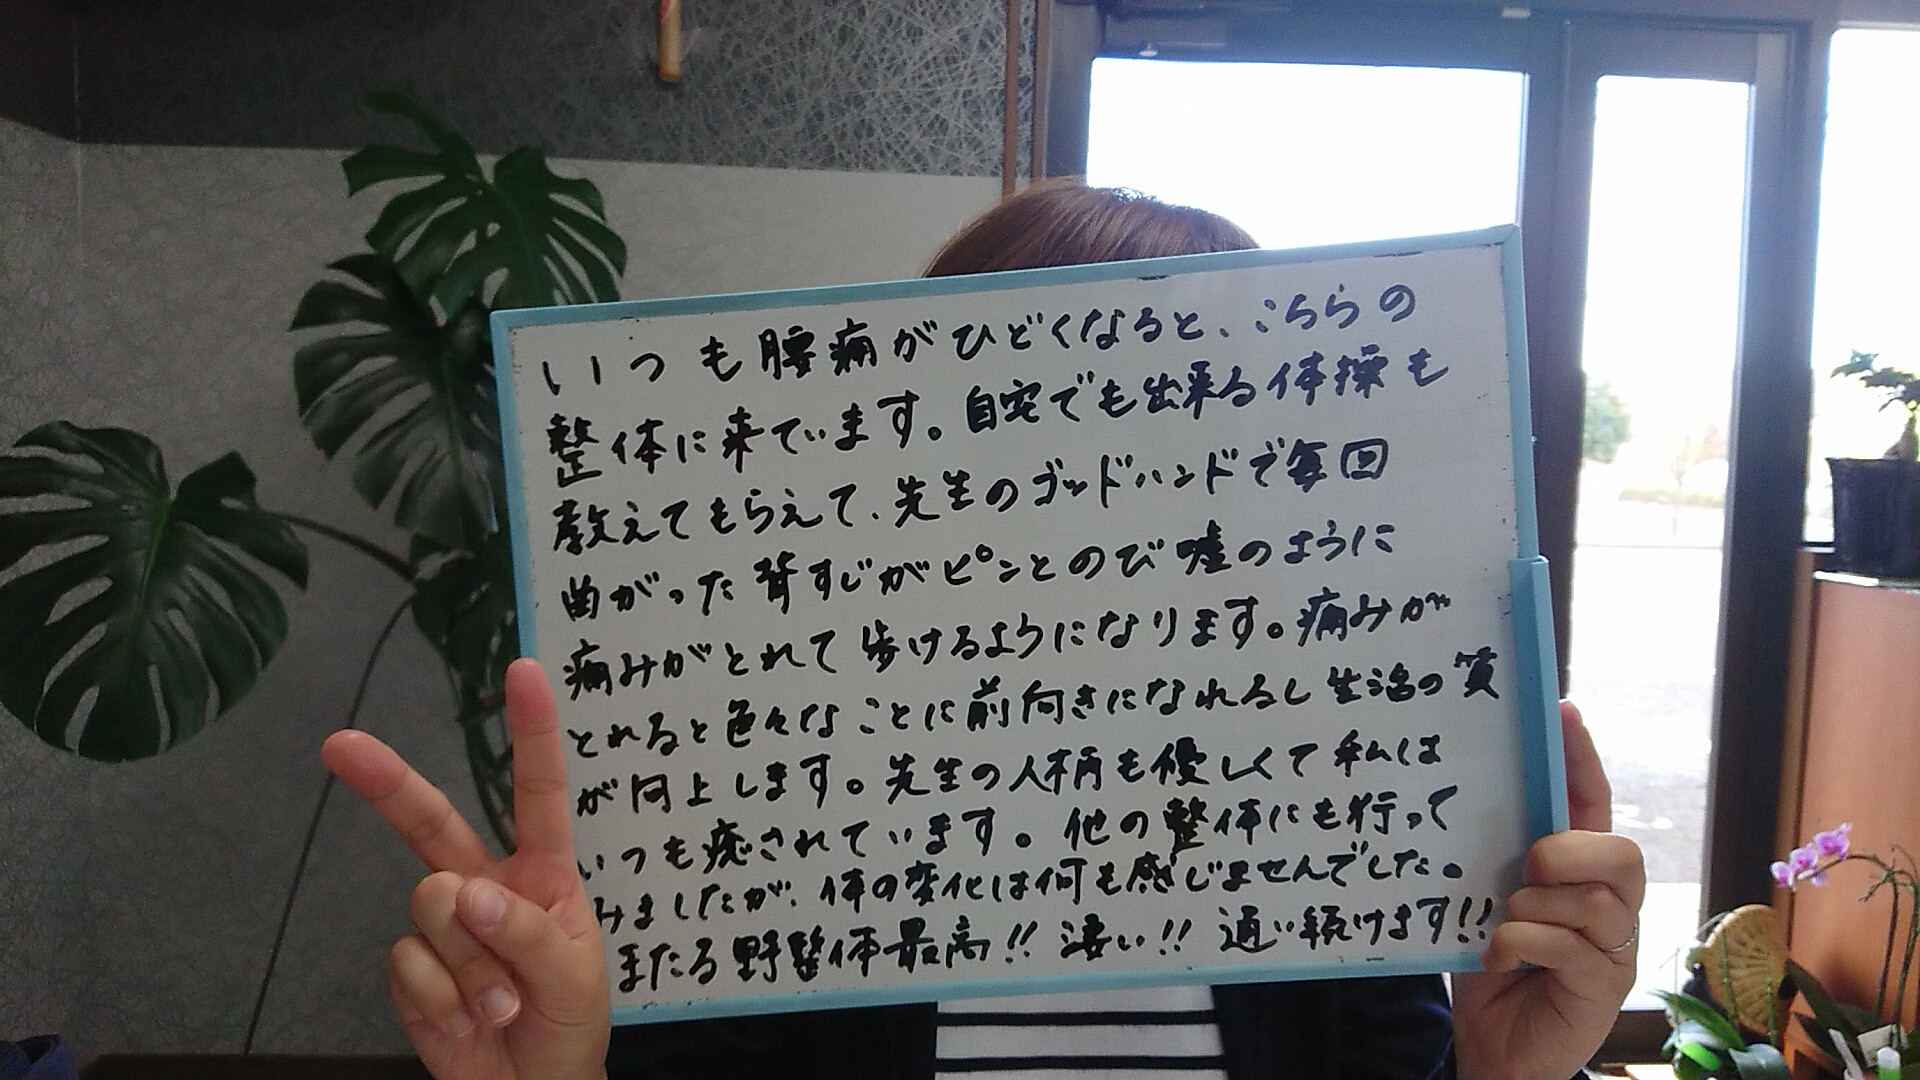 いつも腰痛がひどくなると、こちらの
整体に来ています。自宅でも出来る体操も
教えてもらえて、先生のゴッドハンドで毎回
曲がった背すじがピンとのび嘘のように
痛みがとれて歩けるようになります。痛みが
とれると色々なことに前向きになれるし生活の質
が向上します。先生の人柄も優しくて私は
いつも癒されています。他の整体にも行って
みましたが、体の変化は何も感じませんでした。
またる野整体最高!!凄い!!通い続けます!!